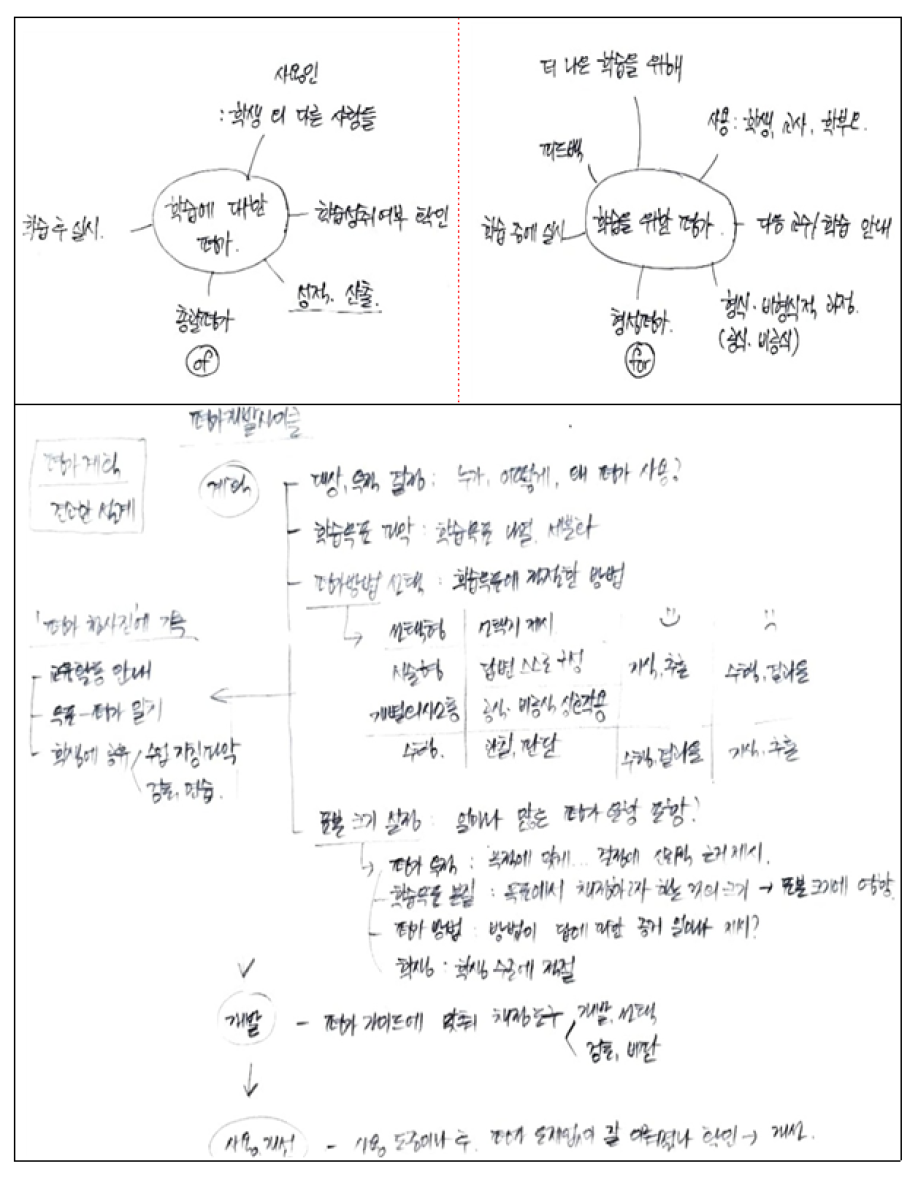 사용인
: 학생 외 다른 사람들
학습에 대한
평가.
학습 후 실시.
학습성취여부 확인
성적. 산출.
총괄평가
of
더 나은 학습을 위해
사용 : 학생, 교사, 학부모.
피드백
학습 중에 실시
학습을 위한 평가.
다음 교수/학습 안내
형성평가.
형식·비형식적 과정.
(공식·비공식)
for
평가개발사이클
평가 계획
건전한 설계
계획
대상, 목적 결정 : 누가, 어떻게, 왜 평가 사용?
학습목표 파악 : 학습목표 나열, 세분화
평가방법 선택 : 학습목표에 적절한 방법
선택형 선택지 제시
서술형 답변 스스로 구성 지식, 추론 수행, 결과물
개별의사소통 공식·비공식 상호작용
수행. 관찰, 판단 수행, 결과물 지식, 추론
'평가 청사진'에 기록
교육활동 안내
목표-평가 알기
학생에 공유 수업 가정 파악
검토, 연습.
표본 크기 설정 : 얼마나 많은 평가 문항 포함?
평가 목적 : 목적에 맞게... 결정에 신뢰적 근거 제시.
학습목표 본질 : 목표에서 채점하고자 하는 것의 크기 → 표본 크기에 영향
평가 방법 : 방법이 답에 대한 증거 얼마나 제시?
학생 : 학생 수준에 적절
개발 - 평가 가이드에 맞춰 채점도구 개발, 선택
검토, 비판
사용, 개선 - 사용 도중이나 후, 평가 문제없이 잘 이뤄졌나 확인 → 개선.